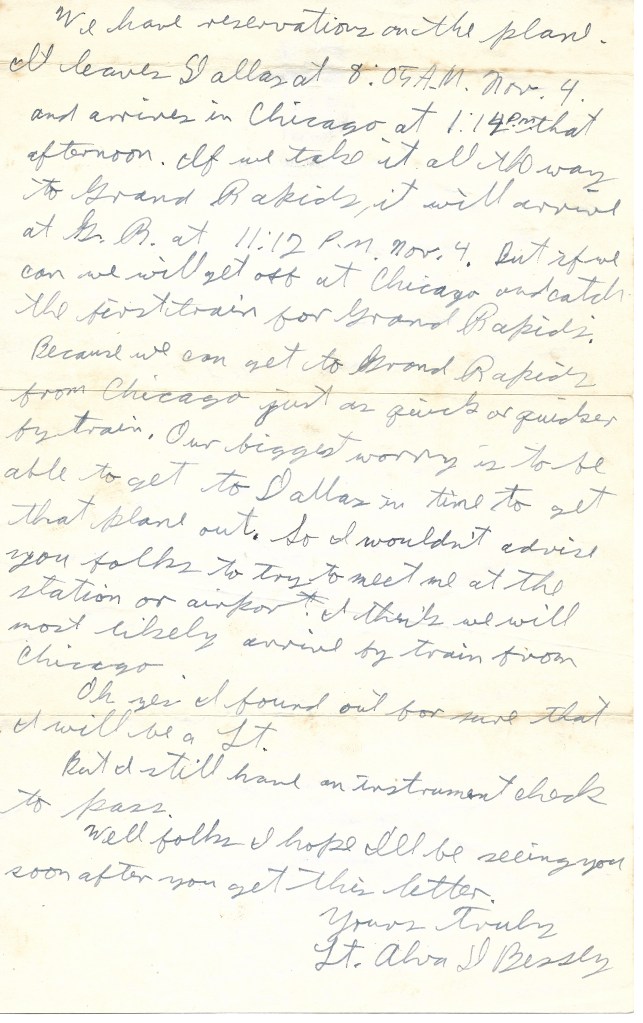 We have reservations on the plane.
It leaves Dallas at 8:05 A.M. Nov. 4.
and arrives in Chicago at 1:14 P.M. that
afternoon. If we take it all the way
to Grand Rapids, it will arrive
at G. R. at 11:12 P.M. Nov. 4. But if we
can we will get off at Chicago and catch
the first train for Grand Rapids.
Because we can get to Grand Rapids
from Chicago just as quick or quicker
by train. Our biggest worry is to be
able to get to Dallas in time to get
that plane out. So I wouldn't advise
you folks to try to meet me at the
station or airport. I think we will
most likely arrive by train from
Chicago
Oh yes I found out for sure that
I will be a Lt.
But I still have an instrument check
to pass.
Well folks I hope I'll be seeing you
soon after you get this letter.
Yours Truly
Lt. Alva D Bessey